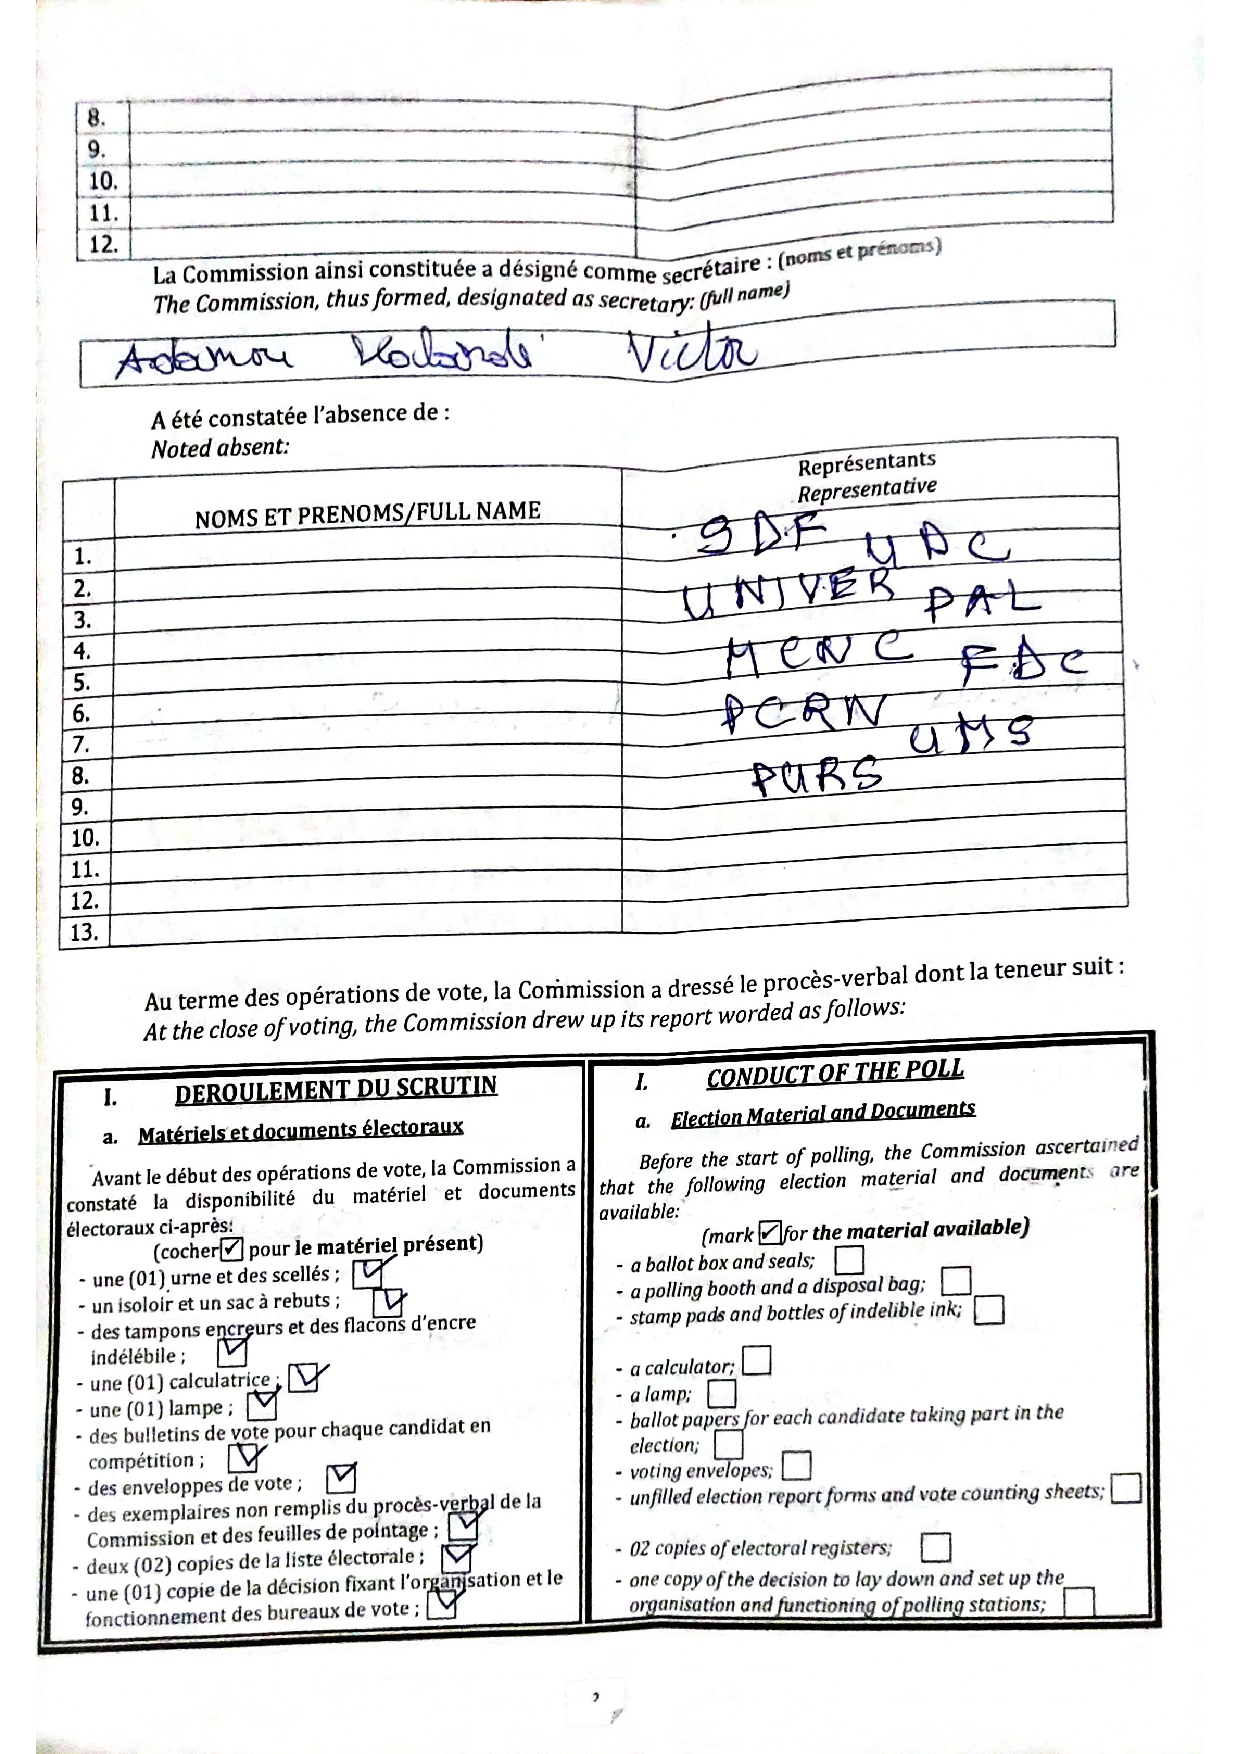 8.
9.
10.
11.
12.
La Commission ainsi constituée a désigné comme secrétaire : (noms et prénoms)
The Commission, thus formed, designated as secretary: (full name)
Adamou Victor
A été constatée l'absence de :
Noted absent:
NOMS ET PRENOMS/FULL NAME
Représentants
Representative
1. SDF UDC
2. UNIVER
3. PAL
4. MCNC
5. FDC
6. PCRN
7. UMS
8. PURS
9.
10.
11.
12.
13.
Au terme des opérations de vote, la Commission a dressé le procès-verbal dont la teneur suit :
At the close of voting, the Commission drew up its report worded as follows:
I. DEROULEMENT DU SCRUTIN
a. Matériels et documents électoraux
Avant le début des opérations de vote, la Commission a
constaté la disponibilité du matériel et documents
électoraux ci-après:
(cocher ☑ pour le matériel présent)
- une (01) urne et des scellés ; ☑
- un isoloir et un sac à rebuts ; ☑
- des tampons encreurs et des flacons d'encre
indélébile ; ☑
- une (01) calculatrice ; ☑
- une (01) lampe ; ☑
- des bulletins de vote pour chaque candidat en
compétition ; ☑
- des enveloppes de vote ; ☑
- des exemplaires non remplis du procès-verbal de la
Commission et des feuilles de pointage ; ☑
- deux (02) copies de la liste électorale ; ☑
- une (01) copie de la décision fixant l'organisation et le
fonctionnement des bureaux de vote ; ☑
I. CONDUCT OF THE POLL
a. Election Material and Documents
Before the start of polling, the Commission ascertained
that the following election material and documents are
available:
(mark ☑ for the material available)
- a ballot box and seals; ☐
- a polling booth and a disposal bag; ☐
- stamp pads and bottles of indelible ink; ☐
- a calculator; ☐
- a lamp; ☐
- ballot papers for each candidate taking part in the
election; ☐
- voting envelopes; ☐
- unfilled election report forms and vote counting sheets; ☐
- 02 copies of electoral registers; ☐
- one copy of the decision to lay down and set up the
organisation and functioning of polling stations; ☐